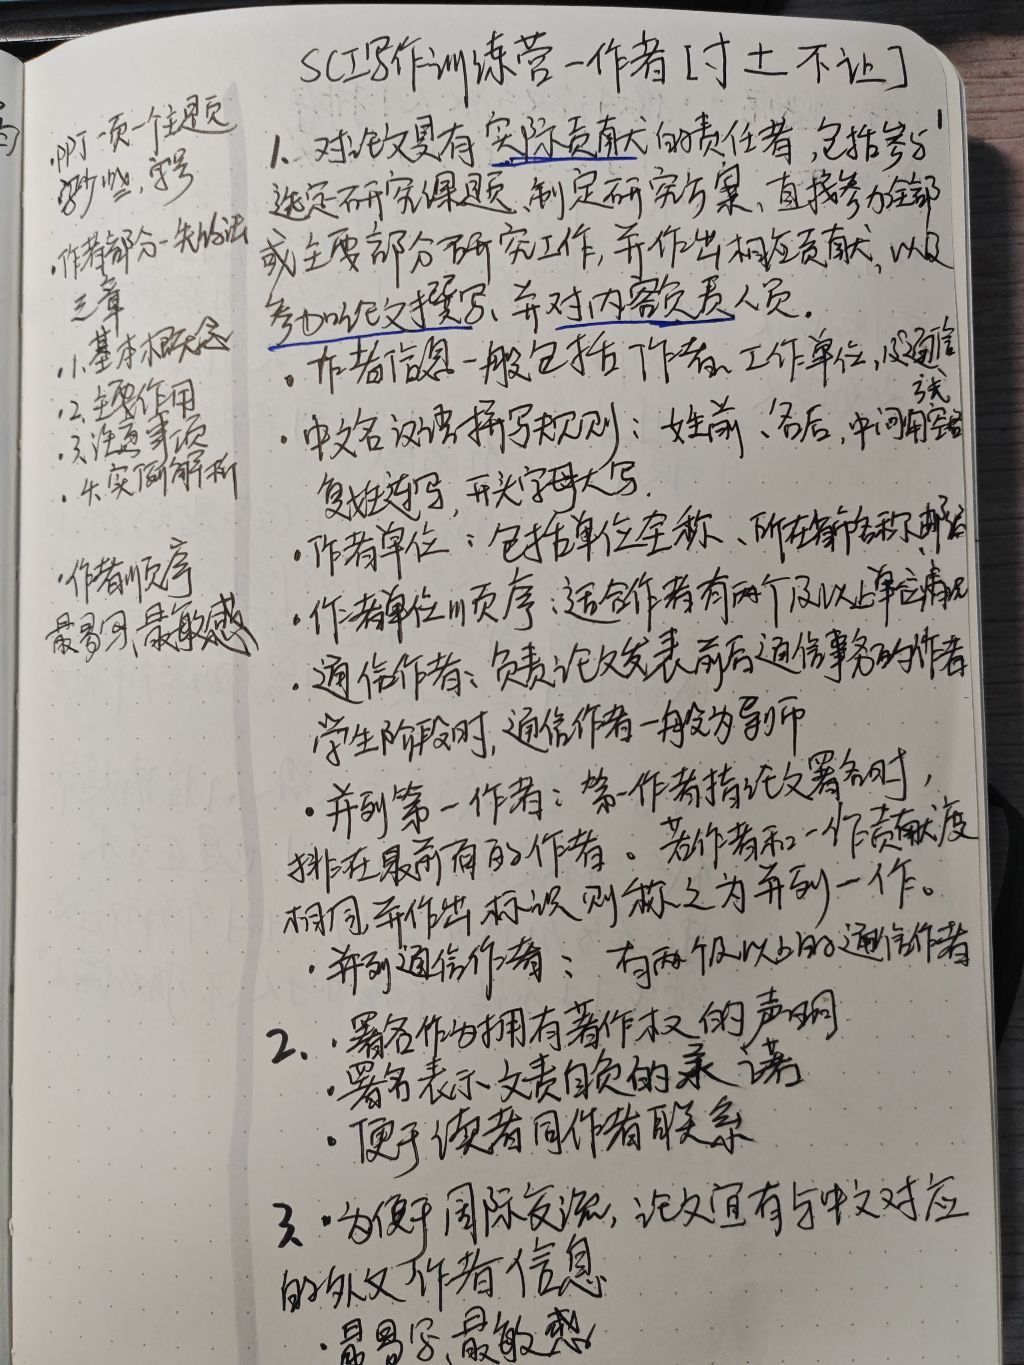 SCI写作训练营—作者[寸土不让]
·PPT一页一个主题
字号
·作者部分
三章
·1.基本概念
·2.主要作用
·3.注意事项
·4.实例解析
·作者顺序
最易写、最敏感
1. 对论文具有实际贡献的责任者,包括参与
选定研究课题、制定研究方案、直接参加全部
或主要部分研究工作,并作出相应贡献,以及
参加论文撰写、并对内容负责人员.
·作者信息一般包括作者、工作单位,及通信
方式
·中文名汉语拼写规则:姓前、名后,中间用空格
复姓连写,开头字母大写.
·作者单位:包括单位全称、所在城市名称、邮编
·作者单位顺序:适合作者有两个及以上单位情况
·通信作者:负责论文发表前后通信事务的作者
学生阶段时,通信作者一般为导师
·并列第一作者:第一作者指论文署名时,
排在最前面的作者。若作者和一作贡献度
相同并作出标识则称之为并列一作。
·并列通信作者:有两个及以上的通信作者
2.·署名作为拥有著作权的声明
·署名表示文责自负的承诺
·便于读者同作者联系
3.·为便于国际交流,论文宜有与中文对应
的外文作者信息
·最易写,最敏感